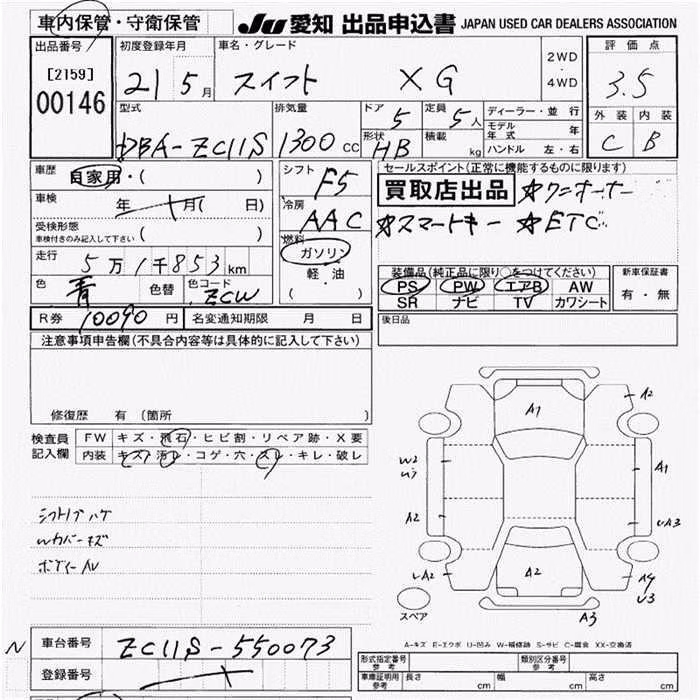 車内保管・守衛保管
JU 愛知 出品申込書 JAPAN USED CAR DEALERS ASSOCIATION
出品番号 [2159] 00146
初度登録年月 21 5月
車名・グレード スイフト XG
2WD・4WD
評価点 3.5
外装 内装
C B
型式 DBA-ZC11S
排気量 1300cc
ドア 5
定員 5人
形状 HB
積載 kg
ディーラー・並行
モデル年式 年
ハンドル 左・右
車歴 自家用・( )
車検 年 月( 日)
受検形態
車検付きのみ記入して下さい ( )
走行 5万1千853km
色 青 色替 色コード ZCW
シフト F5
冷房 AAC
燃料 ガソリン
軽・油
( )
セールスポイント(正常に機能するものに限ります)
買取店出品 ☆ワンオーナー
☆スマートキー ☆ETC
装備品(純正品に限り○をつけてください)
PS PW エアB AW
SR ナビ TV カワシート
新車保証書
有・無
R券 10090円 名変通知期限 月 日
後日品
注意事項申告欄(不具合内容等は具体的に記入して下さい)
修復歴 有(箇所 )
検査員記入欄
FW キズ・飛石・ヒビ割・リペア跡・X要
内装 キズ・汚レ・コゲ・穴・スレ・キレ・破レ
シフトノブハゲ
Wカバーキズ
ボディーAU
A1
A2
W2
A1
A2
UA3
UA2
A2
A4
U3
A3
スペア
A-キズ E-エクボ U-凹み W-補修跡 S-サビ C-腐食 XX-交換済
N
車台番号 ZC11S-550073
登録番号
形式指定番号 参考
類別区分番号 参考
車庫証明用 参考 長さ cm 幅 cm 高さ cm